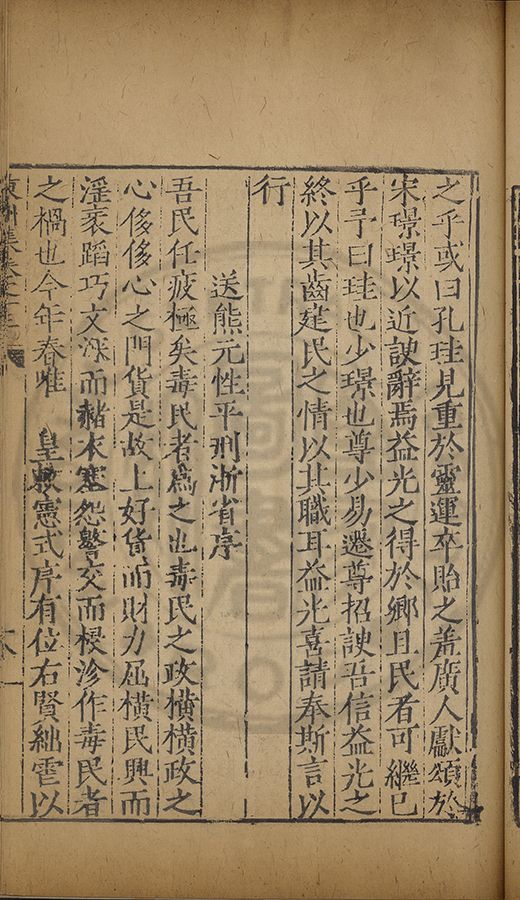 之乎或曰孔珪見重於靈運卒貽之羞廣人獻頌於
宋璟璟以近諛辭焉益光之得於鄉且民者可繼已
乎予曰珪也少璟也尊少易遷尊招諛吾信益光之
終以其齒建民之情以其職耳益光喜請奉斯言以
行
送熊元性平刑浙省序
吾民任疲極矣毒民者為之也毒民之政橫橫政之
心侈侈心之門貨是故上好貨而財力屈橫民興而
淫裒蹈巧文深而赭衣塞怨讐交而祲沴作毒民者
之禍也今年春唯 皇敷憲式序有位右賢絀雹以